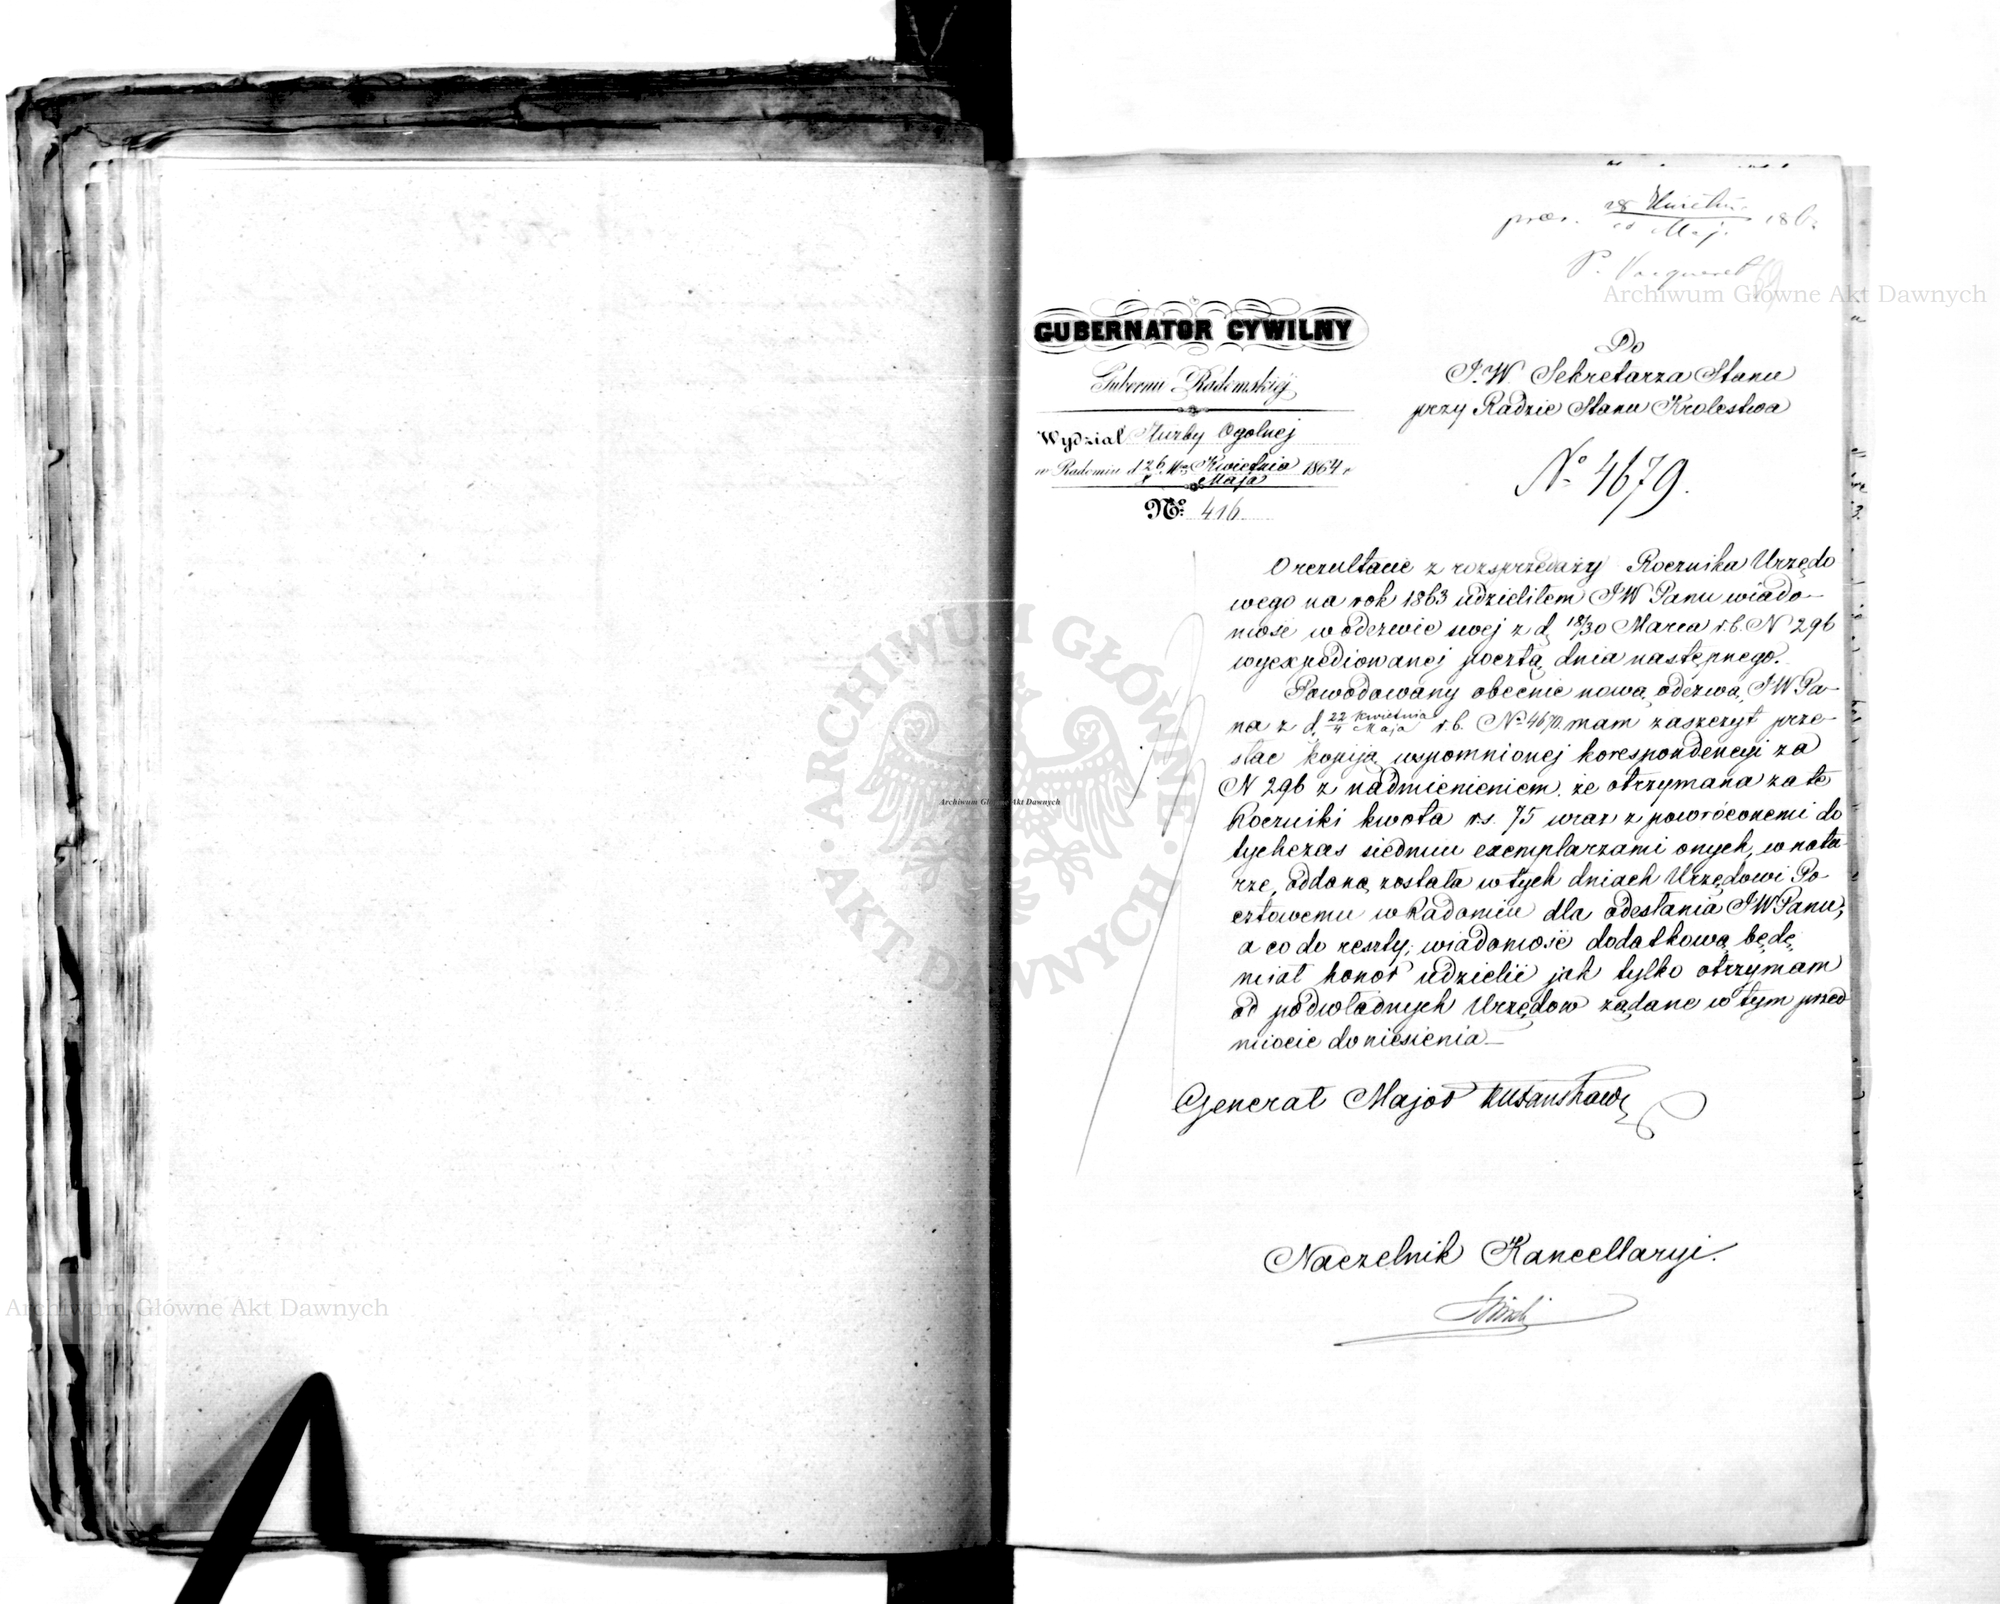 praes. 28 Kwietnia / 10 Maja 186
P. Vacqueret
Archiwum Główne Akt Dawnych
GUBERNATOR CYWILNY
Gubernii Radomskiéj
Wydział Służby Ogolnej
w Radomiu d 26 Kwietnia 1864 r
Maja
No: 416
Do
J.W. Sekretarza Stanu
przy Radzie Stanu Krolestwa
No 4679.
O rezultacie z rozsprzedaży Rocznika Urzędo
wego na rok 1863 udzieliłem JW Panu wiado-
mość w odezwie swej z d. 18/30 Marca r.b. N 296
wyexpediowanej pocztą dnia następnego.
Powodowany obecnie nową odezwą JW Pa-
na z d. 22 Kwietnia / 4 Maja r.b. No 4670 mam zaszczyt prze-
słac kopiją wspomnionej korespondencyi za
N 296 z nadmienieniem że otrzymana za te
Roczniki kwota rs. 75 wraz z powróconemi do
tychczas siedmiu exemplarzami onych, w natu
rze, oddaną została w tych dniach Urzędowi Po
cztowemu w Radomiu dla odesłania JW Panu,
a co do reszty; wiadomość dodatkową będę
miał honor udzielić jak tylko otrzymam
od podwładnych Urzędow żądane w tym przed
miocie doniesienia
Generał Major
Naczelnik Kancellaryi.
ARCHIWUM GŁÓWNE
AKT DAWNYCH
Archiwum Główne Akt Dawnych
Archiwum Główne Akt Dawnych